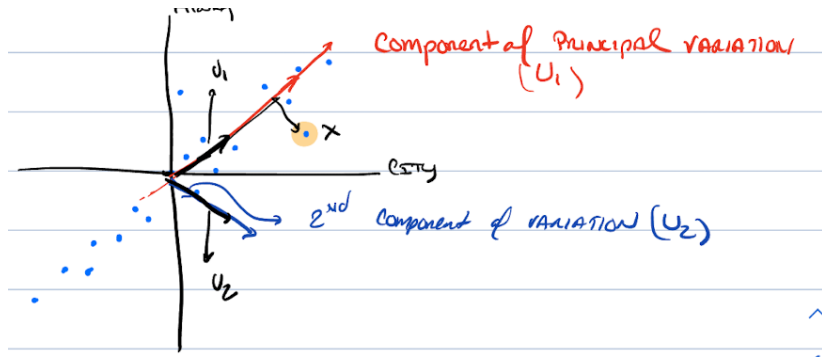 Component of Principal VARIATION
(U₁)
U₁
X
CITY
2nd Component of VARIATION (U₂)
U₂